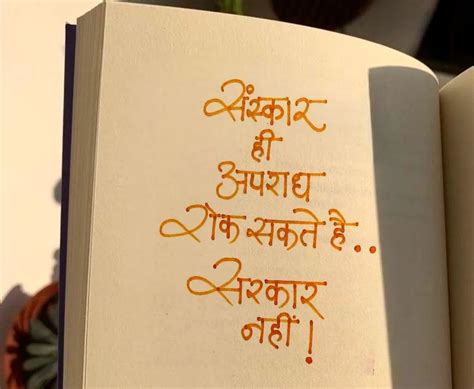 संस्कार
ही
अपराध
रोक सकते है..
सरकार
नहीं!